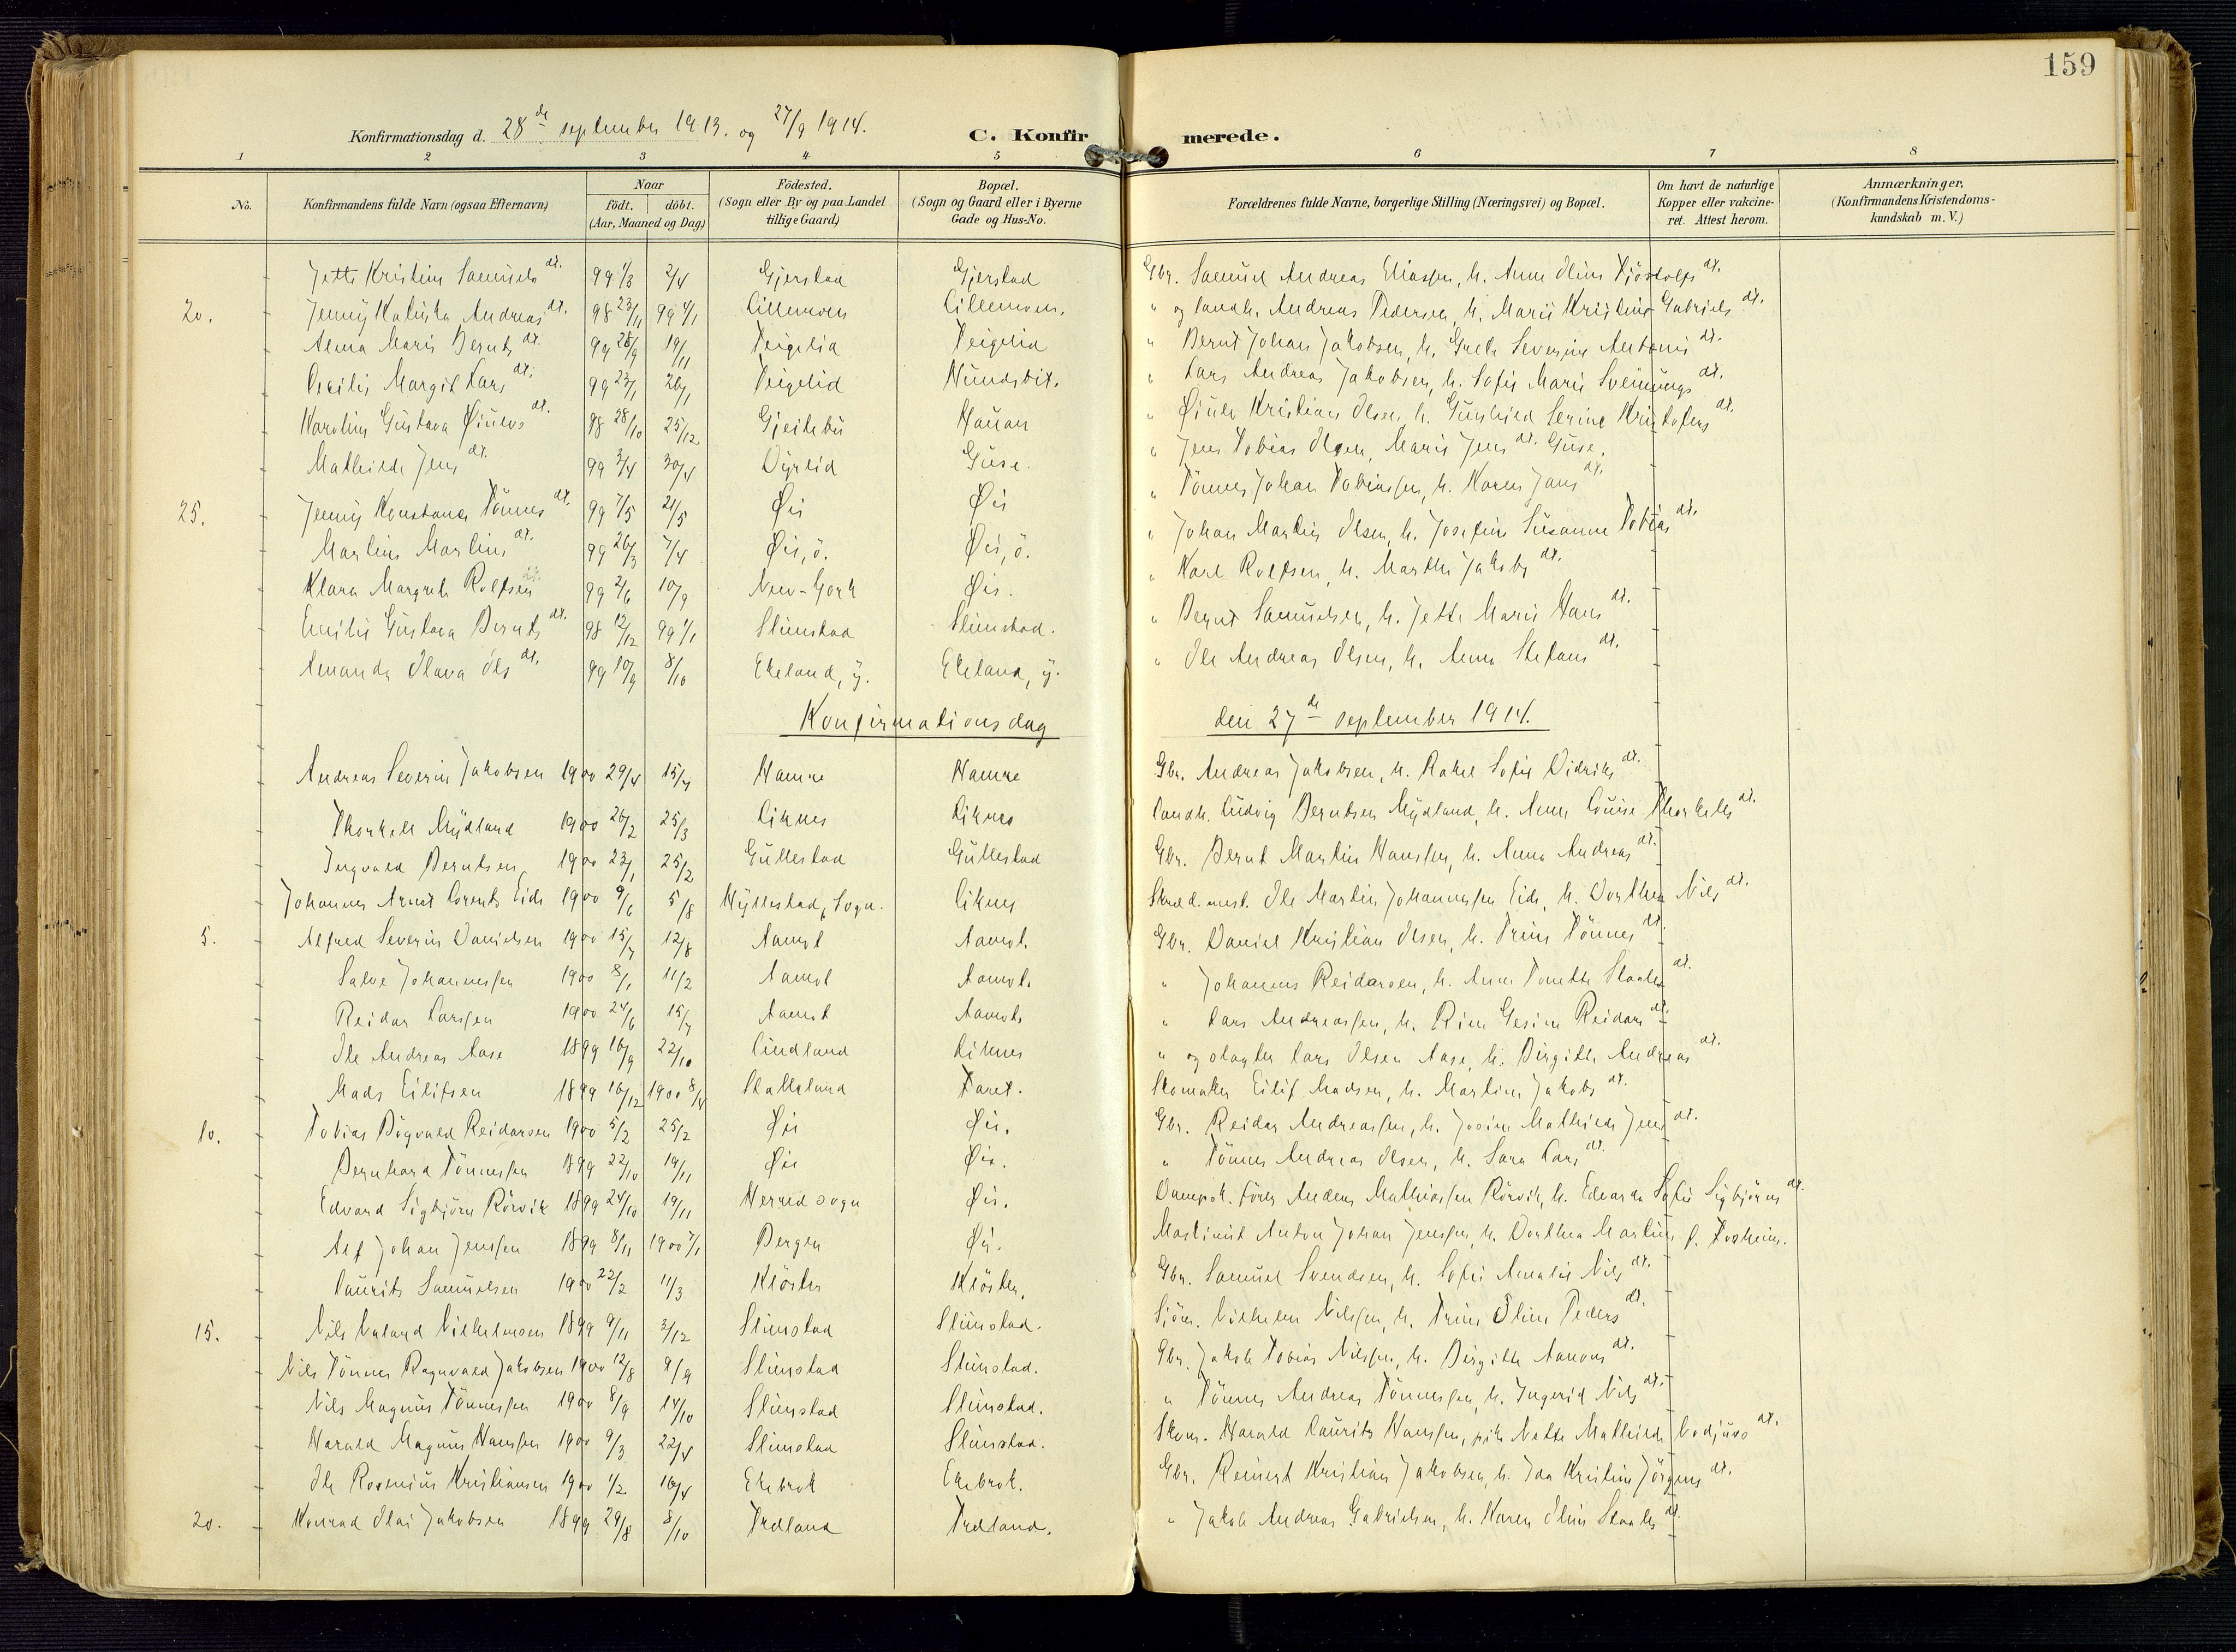 159
Konfirmationsdag d. 28de september 1913. og 27/9 1914.
C. Konfirmerede.
1 2 3 4 5 6 7 8
No. Konfirmandens fulde Navn (ogsaa Efternavn) Naar født. døbt. (Aar, Maaned og Dag) Fødested. (Sogn eller By og paa Landet tillige Gaard) Bopæl. (Sogn og Gaard eller i Byerne Gade og Hus-No. Forældrenes fulde Navne, borgerlige Stilling (Næringsvei) og Bopæl. Om havt de naturlige Kopper eller vakcineret. Attest herom. Anmærkninger, (Konfirmandens Kristendomskundskab m. V.)
Jette Kristine Samuels dt. 99 1/3 2/4 Gjerstad Gjerstad Gbr. Samuel Andreas Eliassen, h. Anne Oline Tjöstolfs dt.
20. Jenny Katinka Andreas dt. 98 23/11 99 4/1 Lillemoen Lillemoen. " og landh. Andreas Pedersen, h. Marie Kristine Gabriels dt.
Alma Marie Bernts dt. 99 28/9 19/11 Teigelid Teigelid " Bernt Johan Jakobsen, h. Grete Severine Antonis dt.
Cecilie Margit Lars dt. 99 23/1 26/1 Teigelid Hundsbit. " Lars Andreas Jakobsen, h. Sofie Marie Sveinungs dt.
Karoline Gustava Øiulvs dt. 98 28/10 25/12 Gjeitebu Hauan " Øiulv Kristian Olsen, h. Gunhild Serine Kristofers dt.
Mathilde Jens dt. 99 3/4 30/4 Dyrlid Guse. " Jens Tobias Olsen, Marie Jens dt. Guse.
25. Jenny Konstance Tönnes dt. 99 7/5 21/5 Øie Øie " Tönnes Johan Tobiassen, h. Karen Jans dt.
Martine Martins dt. 99 26/3 7/4 Øie, ö. Øie, ö. " Johan Martin Olsen, h. Josefine Susanne Tobias dt.
Klara Margrete Rolfsen 99 2/6 10/9 New-York Øie. " Karl Rolfsen, h. Marthe Jakobs dt.
Emilie Gustava Bernts dt. 98 12/12 99 1/1 Slimstad Slimstad. " Bernt Samuelsen, h. Jette Marie Hans dt.
Amanda Olava Ols dt. 99 10/9 8/10 Ekeland, y. Ekeland, y. " Ole Andreas Olsen, h. Anne Stefans dt.
Konfirmationsdag den 27de september 1914.
Andreas Severin Jakobsen 1900 29/4 15/7 Hamre Hamre Gbr. Andreas Jakobsen, h. Rakel Sofie Didriks dt.
Thorkell Mydland 1900 26/2 25/3 Liknes Liknes Landh. Ludvig Berntsen Mydland, h. Anne Louise Thorkels dt.
Ingvald Berntsen 1900 23/1 25/2 Gullestad Gullestad Gbr. Bernt Martin Hanssen, h. Anna Andreas dt.
Johannes Arndt Lorents Eide 1900 9/6 5/8 Hyllestad, Sogn. Liknes Ole Martin Johannessen Eide, h. Dorthea Nils dt.
5. Alfred Severin Danielsen 1900 15/7 12/8 Aamot Aamot. Gbr. Daniel Kristian Olsen, h. Trine Tönnes dt.
Salve Johannessen 1900 8/1 11/2 Aamot Aamot. " Johannes Reidarsen, h. Anne Tonette Slaales dt.
Reidar Larssen 1900 24/6 15/7 Aamot Aamot. " Lars Andreassen, h. Rine Gesine Reidars dt.
Ole Andreas Aase 1899 16/9 22/10 Lindland Liknes " og slagter Lars Olsen Aase, h. Birgitte Andreas dt.
Mads Eilifsen 1899 16/12 1900 8/4 Slatteland Taret. Skomaker Eilif Madsen, h. Martine Jakobs dt.
10. Tobias Bögvald Reidarsen 1900 5/2 25/2 Øie Øie. Gbr. Reidar Andreassen, h. Josine Mathilde Jens dt.
Bernhard Tönnessen 1899 22/10 19/11 Øie Øie. " Tönnes Andreas Olsen, h. Sara Lars dt.
Edvard Sigbjörn Rörvik 1899 24/10 19/11 Herred sogn Øie. Dampsk. förer Anders Mathiassen Rörvik, h. Edvarda Sofie Sigbjörns dt.
Alf Johan Jenssen 1899 8/11 1900 7/1 Bergen Øie. Anton Johan Jenssen, h. Dorthea Martine f. Torheim.
Laurits Samuelsen 1900 22/2 11/3 Klöster Klöster. Gbr. Samuel Svendsen, h. Sofie Amalie Nils dt.
15. Nils Valand Vilhelmsen 1899 9/11 3/12 Slimstad Slimstad. Sjöm. Vilhelm Nilssen, h. Trine Oline Peders dt.
Nils Tönnes Ragnvald Jakobsen 1900 12/8 9/9 Slimstad Slimstad. Gbr. Jakob Tobias Nilssen, h. Birgitte Aanons dt.
Nils Magnus Tönnessen 1900 8/9 14/10 Slimstad Slimstad. " Tönnes Andreas Tönnessen, h. Ingerid Nils dt.
Harald Magnus Hanssen 1900 9/3 22/4 Slimstad Slimstad. Skom. Harald Laurits Hanssen, pike Nette Mathilde dt.
Ole Rosenius Kristiansen 1900 1/2 16/4 Ekebrok Ekebrok. Gbr. Reinert Kristian Jakobsen, h. Ida Kristine Jörgens dt.
20. Konrad Olai Jakobsen 1899 29/8 8/10 Tredland Tredland. " Jakob Andreas Gabrielsen, h. Karen Oline Slaales dt.